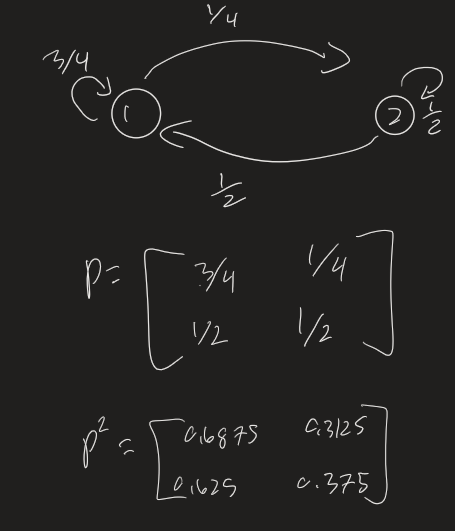 1/4
3/4
1
2
1/2
1/2
P = [3/4 1/4
1/2 1/2]
P² = [0.6875 0.3125
0.625 0.375]